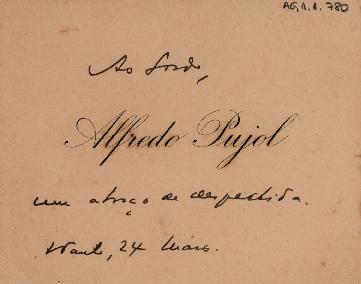 AG,1.1.780
Ao
Alfredo Pujol
um abraço de despedida.
24 Março.